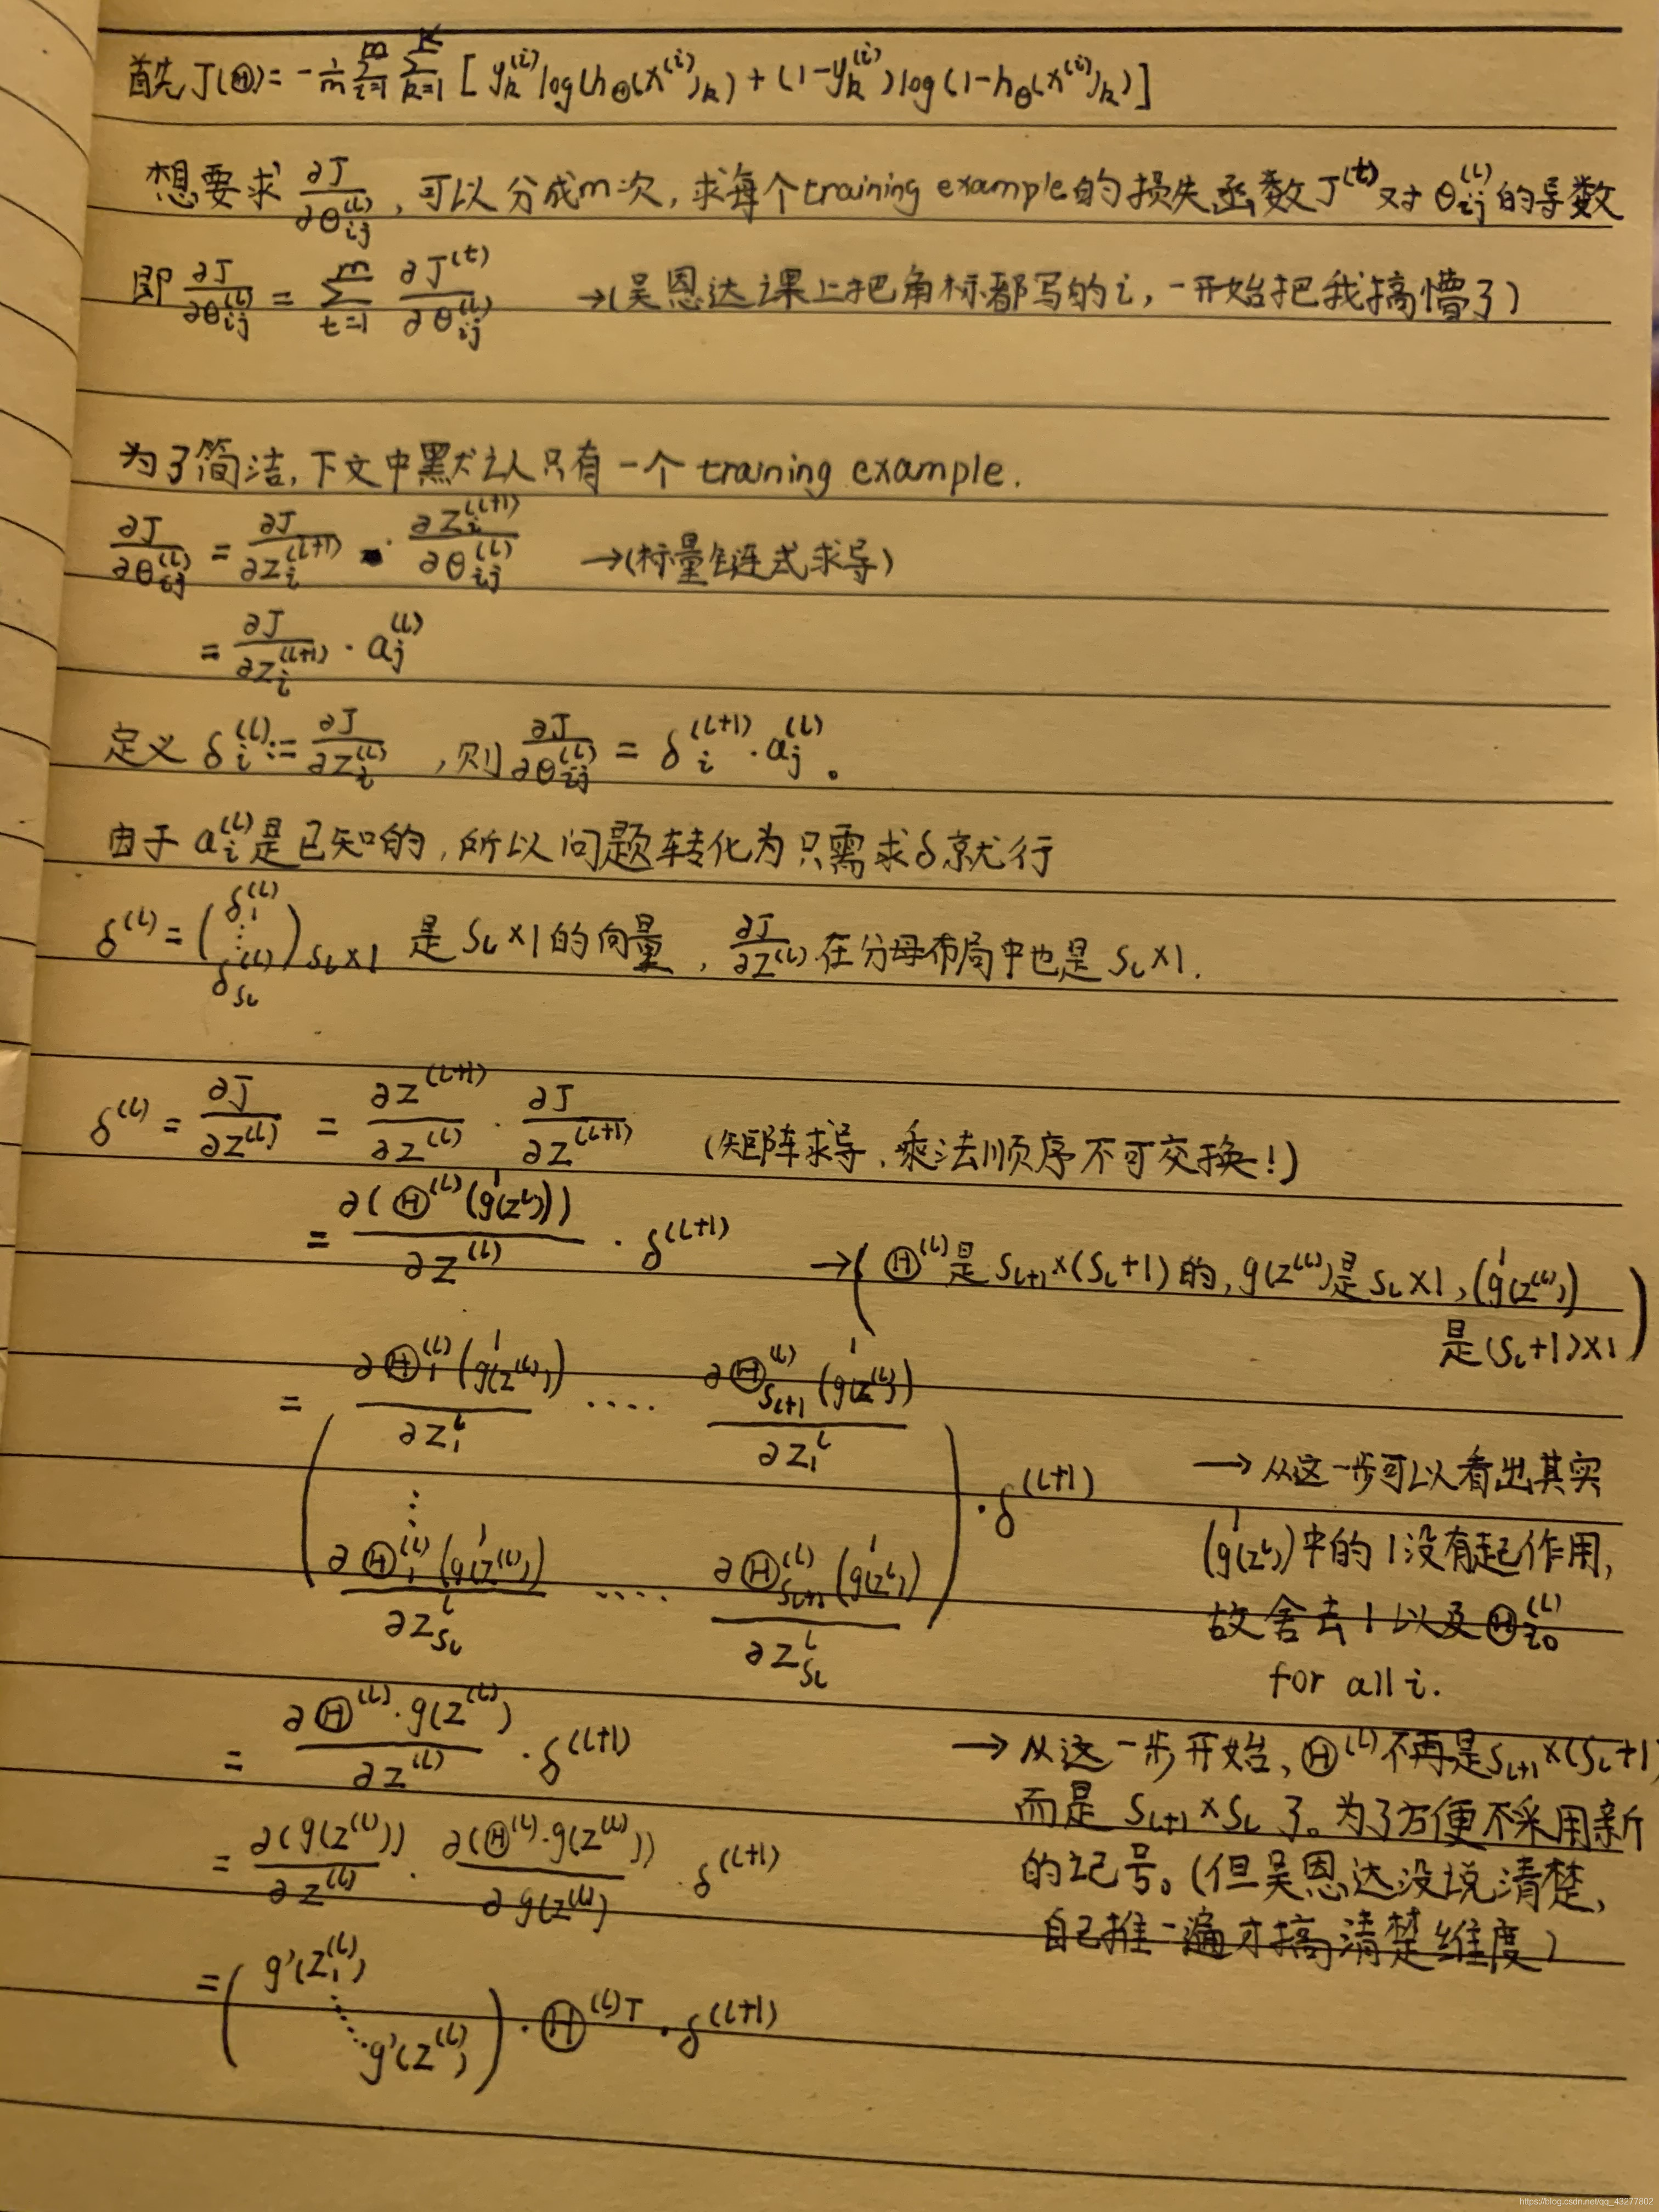 首先 J(Θ) = -1/m Σ_{i=1}^{m} Σ_{k=1}^{K} [ y_k^{(i)} log(h_Θ(x^{(i)})_k) + (1-y_k^{(i)}) log(1-h_Θ(x^{(i)})_k) ]
想要求 ∂J/∂θ_{ij}^{(l)}, 可以分成m次, 求每个training example的损失函数 J^{(t)} 对 θ_{ij}^{(l)} 的导数
即 ∂J/∂θ_{ij}^{(l)} = Σ_{t=1}^{m} ∂J^{(t)}/∂θ_{ij}^{(l)} →(吴恩达课上把角标都写的i, 一开始把我搞懵了)
为了简洁, 下文中默认只有一个 training example.
∂J/∂θ_{ij}^{(l)} = ∂J/∂z_i^{(l+1)} · ∂z_i^{(l+1)}/∂θ_{ij}^{(l)} →(标量链式求导)
= ∂J/∂z_i^{(l+1)} · a_j^{(l)}
定义 δ_i^{(l)} := ∂J/∂z_i^{(l)}, 则 ∂J/∂θ_{ij}^{(l)} = δ_i^{(l+1)} · a_j^{(l)}。
由于 a_i^{(l)} 是已知的, 所以问题转化为只需求δ就行
δ^{(l)} = (δ_1^{(l)} ⋮ δ_{s_l}^{(l)})_{s_l×1} 是 s_l×1 的向量, ∂J/∂z^{(l)} 在分母布局中也是 s_l×1.
δ^{(l)} = ∂J/∂z^{(l)} = ∂z^{(l+1)}/∂z^{(l)} · ∂J/∂z^{(l+1)} (矩阵求导, 乘法顺序不可交换!)
= ∂(Θ^{(l)} (1 g(z^l)))/∂z^{(l)} · δ^{(l+1)} →( Θ^{(l)} 是 s_{l+1}×(s_l+1) 的, g(z^{(l)}) 是 s_l×1, (1 g(z^{(l)}))
是 (s_l+1)×1 )
= ( ∂Θ_1^{(l)} (1 g(z^{(l)}))/∂z_1^l ···· ∂Θ_{s_{l+1}}^{(l)} (1 g(z^{(l)}))/∂z_1^l
⋮
∂Θ_1^{(l)} (1 g(z^{(l)}))/∂z_{s_l}^l ···· ∂Θ_{s_{l+1}}^{(l)} (1 g(z^l))/∂z_{s_l}^l ) · δ^{(l+1)}
→ 从这一步可以看出其实
(1 g(z^l)) 中的 1 没有起作用,
故舍去 1 以及 Θ_{i0}^{(l)}
for all i.
= ∂Θ^{(l)}·g(z^{(l)})/∂z^{(l)} · δ^{(l+1)}
→ 从这一步开始, Θ^{(l)} 不再是 s_{l+1}×(s_l+1)
而是 s_{l+1}×s_l 了。为了方便不采用新
的记号。(但吴恩达没说清楚,
自己推一遍才搞清楚维度)
= ∂(g(z^{(l)}))/∂z^{(l)} · ∂(Θ^{(l)}·g(z^{(l)}))/∂g(z^{(l)}) · δ^{(l+1)}
= ( g'(z_1^{(l)}) ⋱ g'(z^{(l)}) ) · Θ^{(l)T} · δ^{(l+1)}
https://blog.csdn.net/qq_43277802